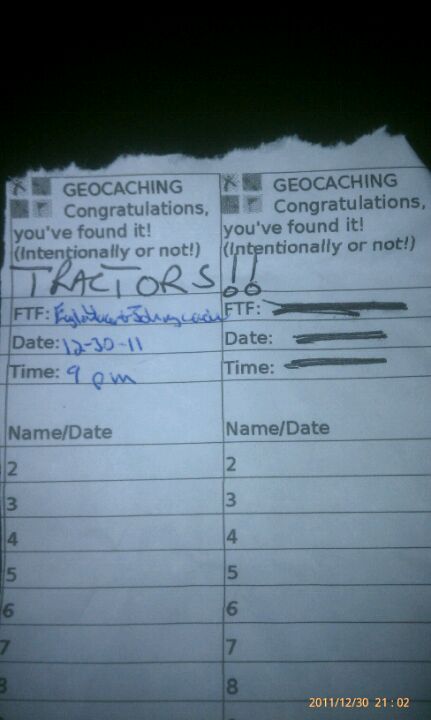 GEOCACHING
Congratulations,
you've found it!
(Intentionally or not!)
GEOCACHING
Congratulations,
you've found it!
(Intentionally or not!)
TRACTORS!!
FTF:
Date: 12-30-11
Time: 9 pm
FTF:
Date:
Time:
Name/Date
2
3
4
5
6
7
8
Name/Date
2
3
4
5
6
7
8
2011/12/30 21:02